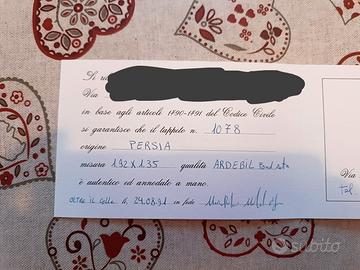 Si ri
Via
in base agli articoli 1490-1491 del Codice Civile
si garantisce che il tappeto n. 1078
origine PERSIA
misura 192x135 qualità ARDEBIL
è autentico ed annodato a mano.
il 24.08.91 in fede
Via
tel
subito